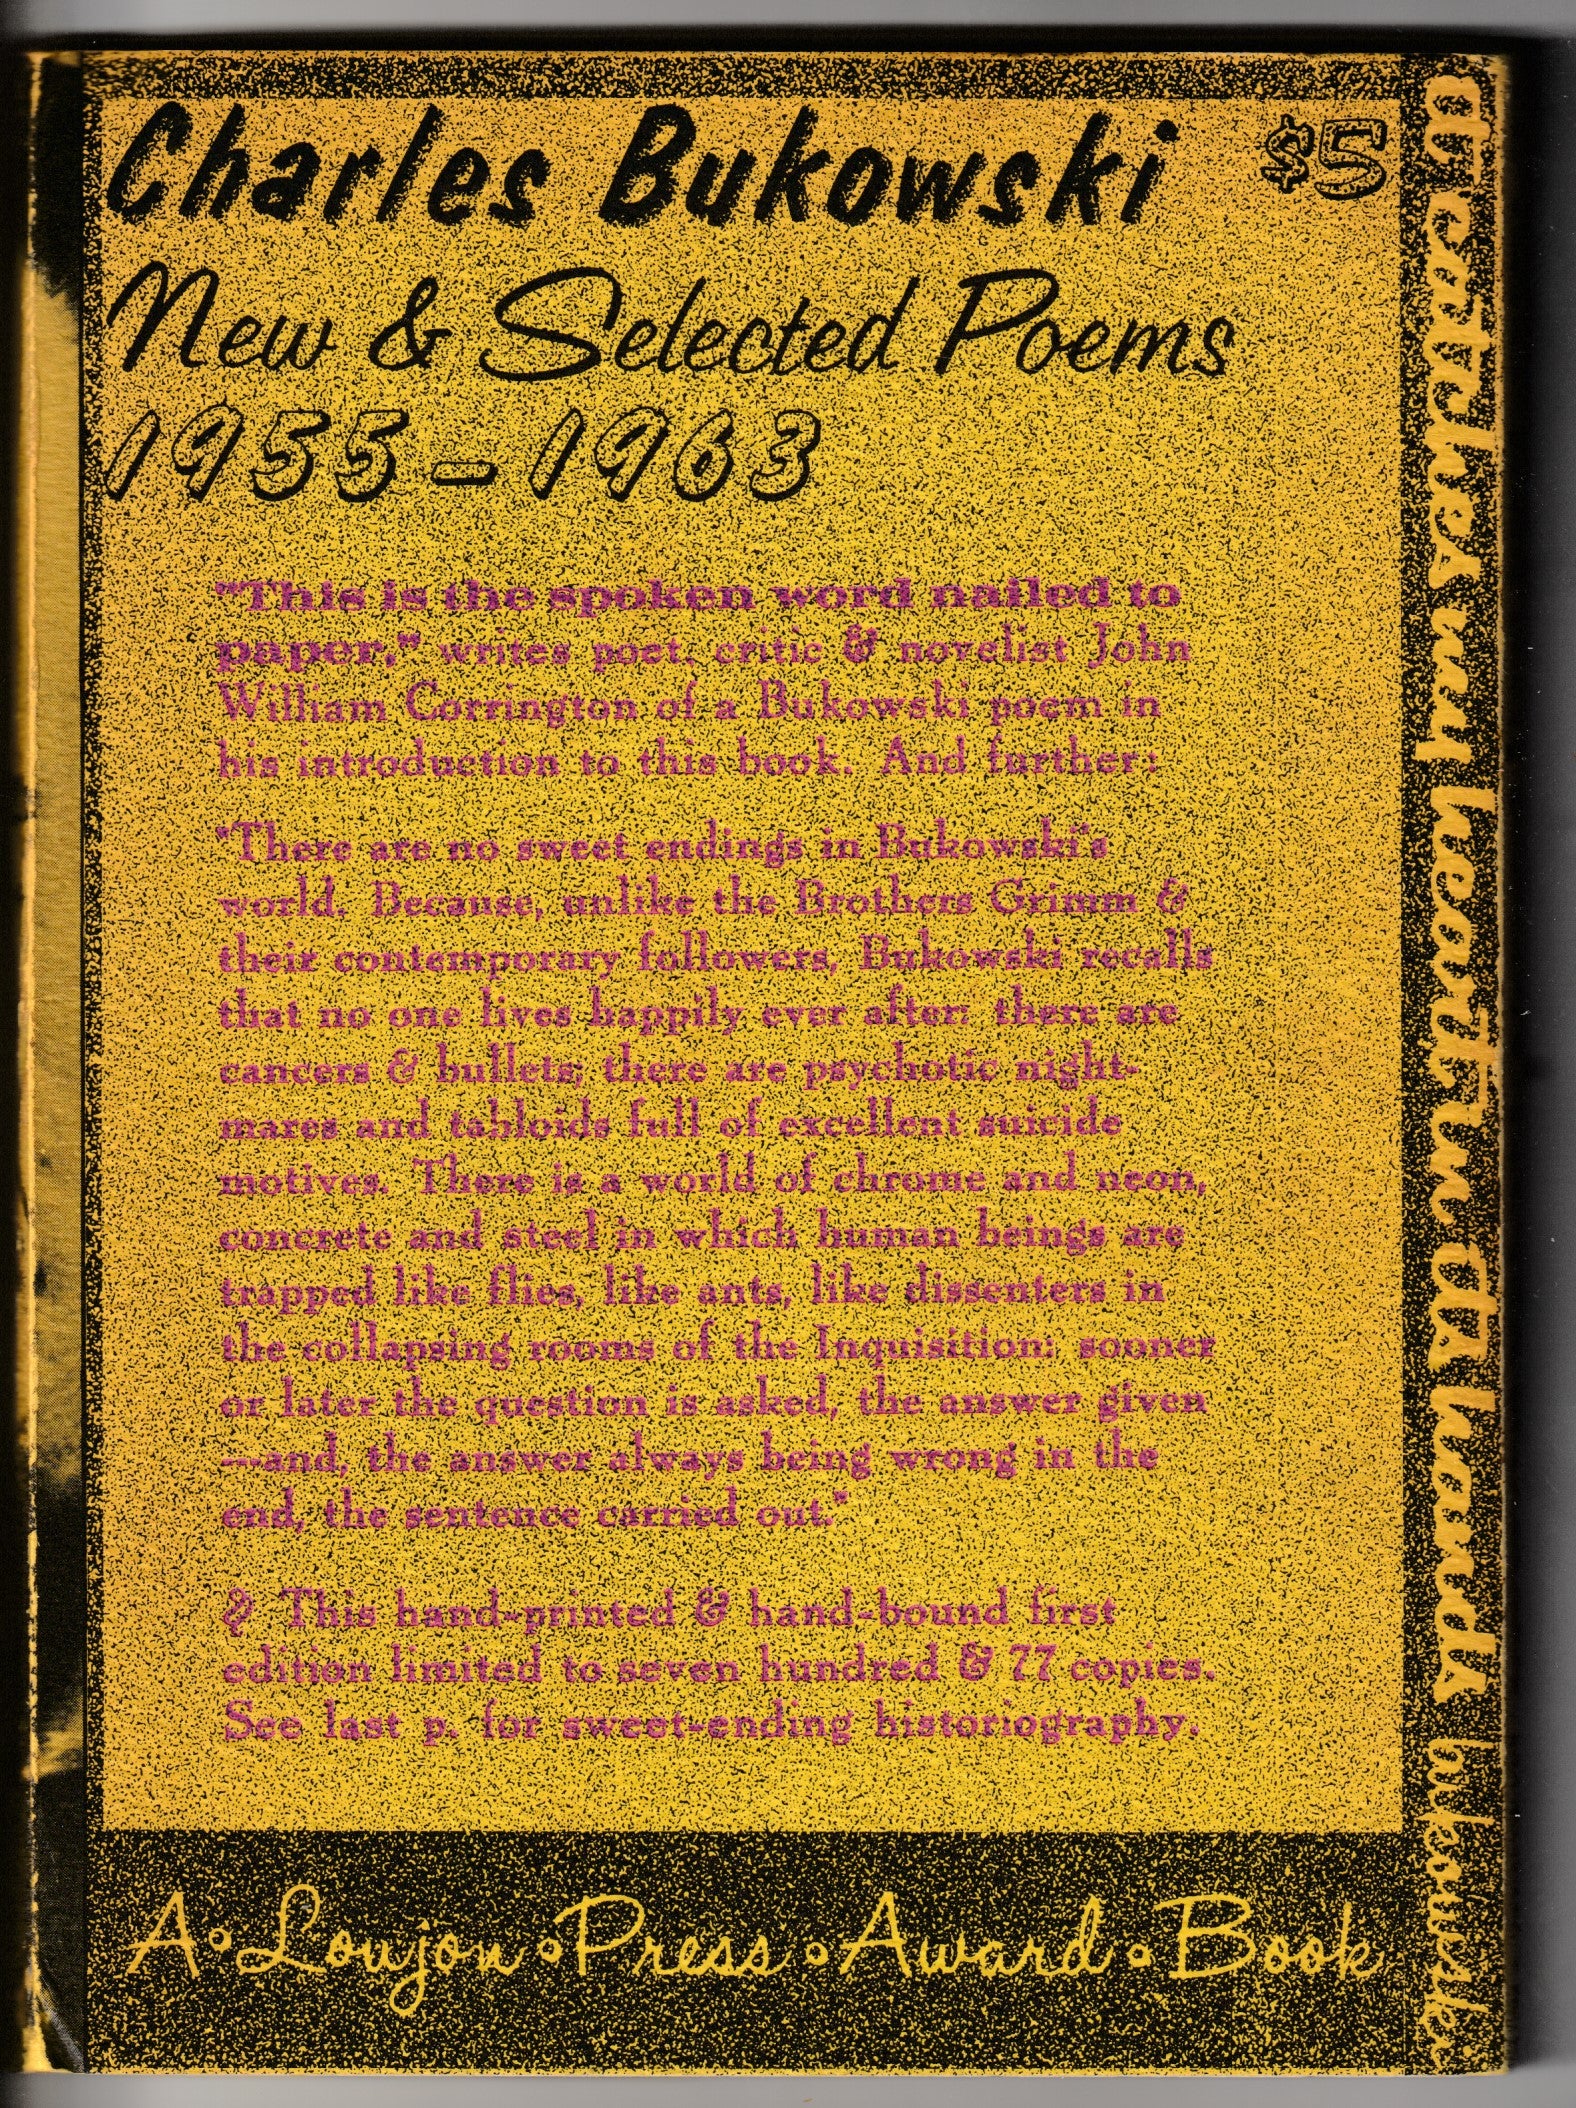 Charles Bukowski $5
New & Selected Poems
1955-1963
"This is the spoken word nailed to
paper," writes poet, critic & novelist John
William Corrington of a Bukowski poem in
his introduction to this book. And further:
"There are no sweet endings in Bukowski's
world. Because, unlike the Brothers Grimm &
their contemporary followers, Bukowski recalls
that no one lives happily ever after: there are
cancers & bullets; there are psychotic night-
mares and tabloids full of excellent suicide
motives. There is a world of chrome and neon,
concrete and steel in which human beings are
trapped like flies, like ants, like dissenters in
the collapsing rooms of the Inquisition: sooner
or later the question is asked, the answer given
—and, the answer always being wrong in the
end, the sentence carried out."
This hand-printed & hand-bound first
edition limited to seven hundred & 77 copies.
See last p. for sweet-ending historiography.
A • Loujon • Press • Award • Book
it catches my heart in its hands bukowski